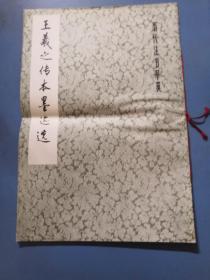 王羲之传本墨迹选
历代法书萃英